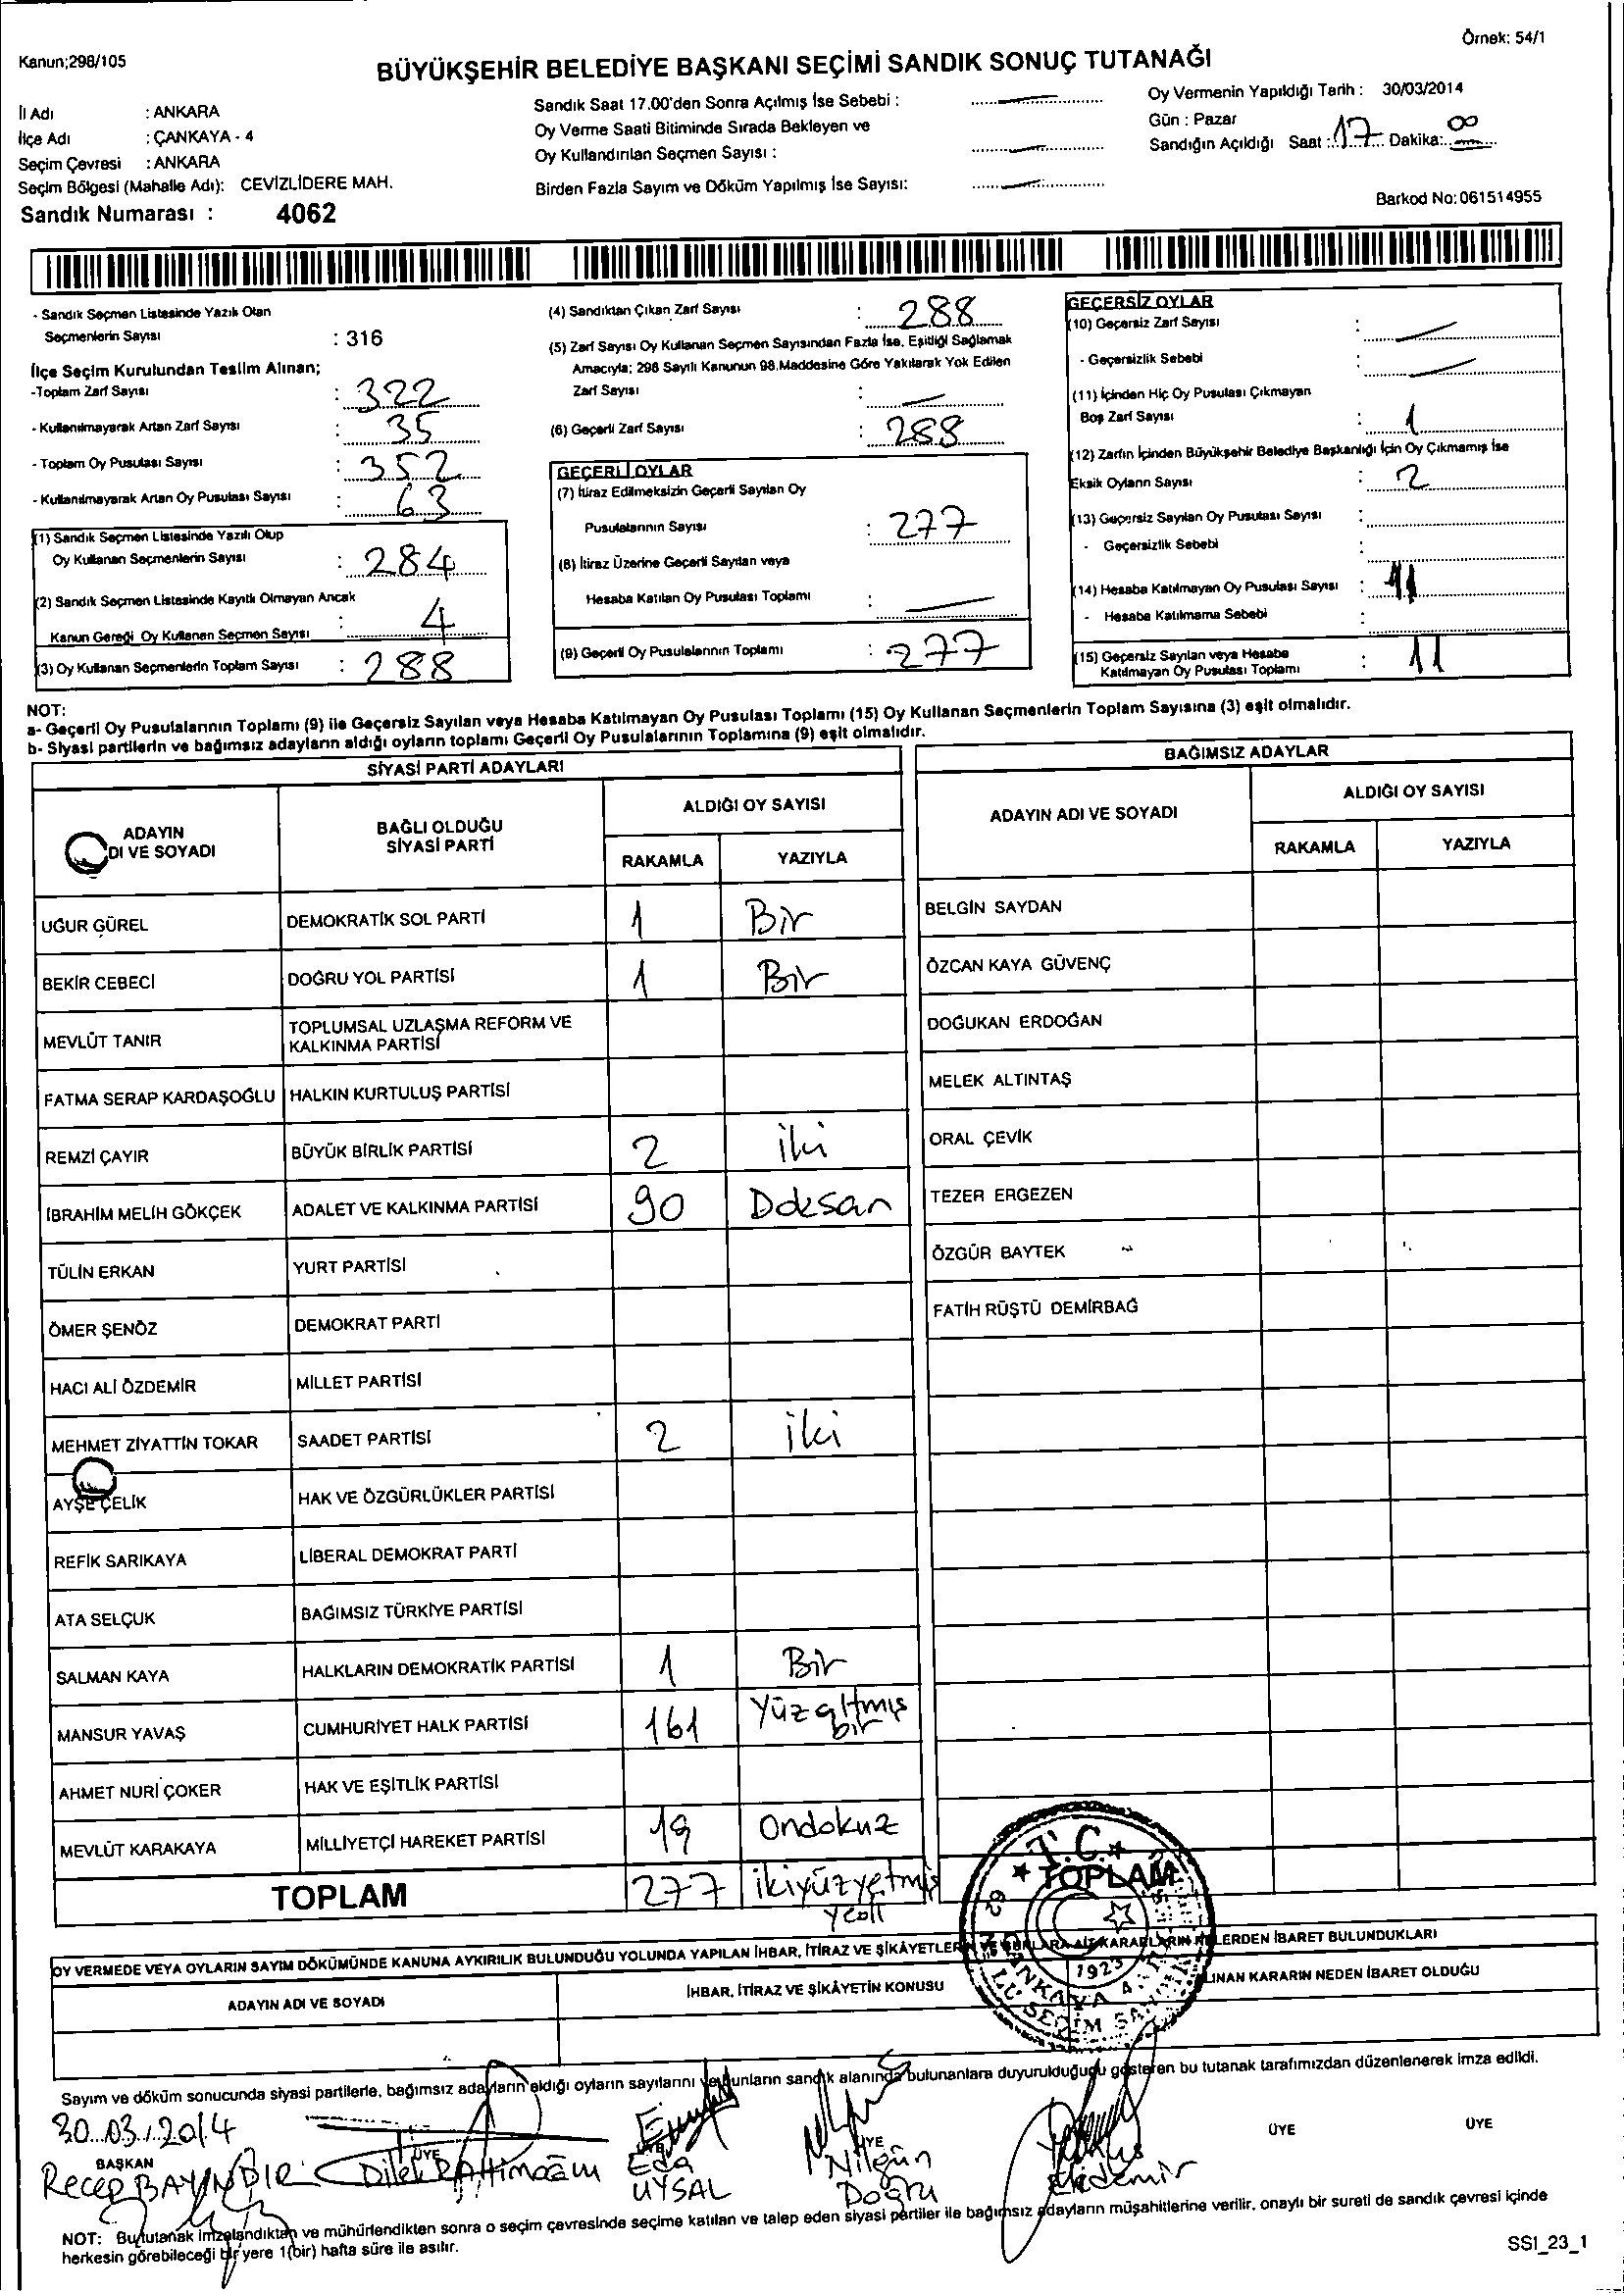 Örnek: 54/1
Kanun;298/105
BÜYÜKŞEHİR BELEDİYE BAŞKANI SEÇİMİ SANDIK SONUÇ TUTANAĞI
İl Adı : ANKARA
İlçe Adı : ÇANKAYA - 4
Seçim Çevresi : ANKARA
Seçim Bölgesi (Mahalle Adı): CEVİZLİDERE MAH.
Sandık Numarası : 4062
Sandık Saat 17.00'den Sonra Açılmış İse Sebebi :
Oy Verme Saati Bitiminde Sırada Bekleyen ve
Oy Kullandırılan Seçmen Sayısı :
Birden Fazla Sayım ve Döküm Yapılmış İse Sayısı:
Oy Vermenin Yapıldığı Tarih : 30/03/2014
Gün : Pazar
Sandığın Açıldığı Saat : 17 Dakika: 00
Barkod No: 061514955
- Sandık Seçmen Listesinde Yazılı Olan
Seçmenlerin Sayısı : 316
İlçe Seçim Kurulundan Teslim Alınan;
-Toplam Zarf Sayısı : 322
- Kullanılmayarak Artan Zarf Sayısı : 35
- Toplam Oy Pusulası Sayısı : 352
- Kullanılmayarak Artan Oy Pusulası Sayısı : 63
(1) Sandık Seçmen Listesinde Yazılı Olup
Oy Kullanan Seçmenlerin Sayısı : 284
(2) Sandık Seçmen Listesinde Kayıtlı Olmayan Ancak
Kanun Gereği Oy Kullanan Seçmen Sayısı : 4
(3) Oy Kullanan Seçmenlerin Toplam Sayısı : 288
(4) Sandıktan Çıkan Zarf Sayısı : 288
(5) Zarf Sayısı Oy Kullanan Seçmen Sayısından Fazla İse, Eşitliği Sağlamak
Amacıyla; 298 Sayılı Kanunun 98.Maddesine Göre Yakılarak Yok Edilen
Zarf Sayısı :
(6) Geçerli Zarf Sayısı : 288
GEÇERLİ OYLAR
(7) İtiraz Edilmeksizin Geçerli Sayılan Oy
Pusulalarının Sayısı : 277
(8) İtiraz Üzerine Geçerli Sayılan veya
Hesaba Katılan Oy Pusulası Toplamı :
(9) Geçerli Oy Pusulalarının Toplamı : 277
GEÇERSİZ OYLAR
(10) Geçersiz Zarf Sayısı :
- Geçersizlik Sebebi :
(11) İçinden Hiç Oy Pusulası Çıkmayan
Boş Zarf Sayısı : 1
(12) Zarfın İçinden Büyükşehir Belediye Başkanlığı İçin Oy Çıkmamış İse
Eksik Oyların Sayısı : 2
(13) Geçersiz Sayılan Oy Pusulası Sayısı :
- Geçersizlik Sebebi :
(14) Hesaba Katılmayan Oy Pusulası Sayısı : 11
- Hesaba Katılmama Sebebi :
(15) Geçersiz Sayılan veya Hesaba
Katılmayan Oy Pusulası Toplamı : 11
NOT:
a- Geçerli Oy Pusulalarının Toplamı (9) ile Geçersiz Sayılan veya Hesaba Katılmayan Oy Pusulası Toplamı (15) Oy Kullanan Seçmenlerin Toplam Sayısına (3) eşit olmalıdır.
b- Siyasi partilerin ve bağımsız adayların aldığı oyların toplamı Geçerli Oy Pusulalarının Toplamına (9) eşit olmalıdır.
SİYASİ PARTİ ADAYLARI
ADAYIN
DI VE SOYADI
BAĞLI OLDUĞU
SİYASİ PARTİ
ALDIĞI OY SAYISI
RAKAMLA YAZIYLA
UĞUR GÜREL DEMOKRATİK SOL PARTİ 1 Bir
BEKİR CEBECİ DOĞRU YOL PARTİSİ 1 Bir
MEVLÜT TANIR TOPLUMSAL UZLAŞMA REFORM VE
KALKINMA PARTİSİ
FATMA SERAP KARDAŞOĞLU HALKIN KURTULUŞ PARTİSİ
REMZİ ÇAYIR BÜYÜK BİRLİK PARTİSİ 2 iki
İBRAHİM MELİH GÖKÇEK ADALET VE KALKINMA PARTİSİ 90 Doksan
TÜLİN ERKAN YURT PARTİSİ
ÖMER ŞENÖZ DEMOKRAT PARTİ
HACI ALİ ÖZDEMİR MİLLET PARTİSİ
MEHMET ZİYATTİN TOKAR SAADET PARTİSİ 2 iki
AYŞE ÇELİK HAK VE ÖZGÜRLÜKLER PARTİSİ
REFİK SARIKAYA LİBERAL DEMOKRAT PARTİ
ATA SELÇUK BAĞIMSIZ TÜRKİYE PARTİSİ
SALMAN KAYA HALKLARIN DEMOKRATİK PARTİSİ 1 Bir
MANSUR YAVAŞ CUMHURİYET HALK PARTİSİ 161 Yüzaltmış
bir
AHMET NURİ ÇOKER HAK VE EŞİTLİK PARTİSİ
MEVLÜT KARAKAYA MİLLİYETÇİ HAREKET PARTİSİ 19 Ondokuz
TOPLAM 277 ikiyüzyetmiş
yedi
BAĞIMSIZ ADAYLAR
ADAYIN ADI VE SOYADI
ALDIĞI OY SAYISI
RAKAMLA YAZIYLA
BELGİN SAYDAN
ÖZCAN KAYA GÜVENÇ
DOĞUKAN ERDOĞAN
MELEK ALTINTAŞ
ORAL ÇEVİK
TEZER ERGEZEN
ÖZGÜR BAYTEK
FATİH RÜŞTÜ DEMİRBAĞ
TOPLAM
T.C.
1923
ÇANKAYA 4.
OY VERMEDE VEYA OYLARIN SAYIM DÖKÜMÜNDE KANUNA AYKIRILIK BULUNDUĞU YOLUNDA YAPILAN İHBAR, İTİRAZ VE ŞİKÂYETLERİN VE BUNLARA AİT KARARLARIN NELERDEN İBARET BULUNDUKLARI
ADAYIN ADI VE SOYADI
İHBAR, İTİRAZ VE ŞİKÂYETİN KONUSU
LINAN KARARIN NEDEN İBARET OLDUĞU
Sayım ve döküm sonucunda siyasi partilerle, bağımsız adayların aldığı oyların sayılarını ve bunların sandık alanında bulunanlara duyurulduğunu gösteren bu tutanak tarafımızdan düzenlenerek imza edildi.
30.03.2014
BAŞKAN ÜYE ÜYE ÜYE ÜYE ÜYE
Recep BAYINDIR Dilek Eda
UYSAL
Nilgün
Doğru
Akdemir
NOT: Bu tutanak imzalandıktan ve mühürlendikten sonra o seçim çevresinde seçime katılan ve talep eden siyasi partiler ile bağımsız adayların müşahitlerine verilir, onaylı bir sureti de sandık çevresi içinde
herkesin görebileceği bir yere 1(bir) hafta süre ile asılır.
SSI_23_1